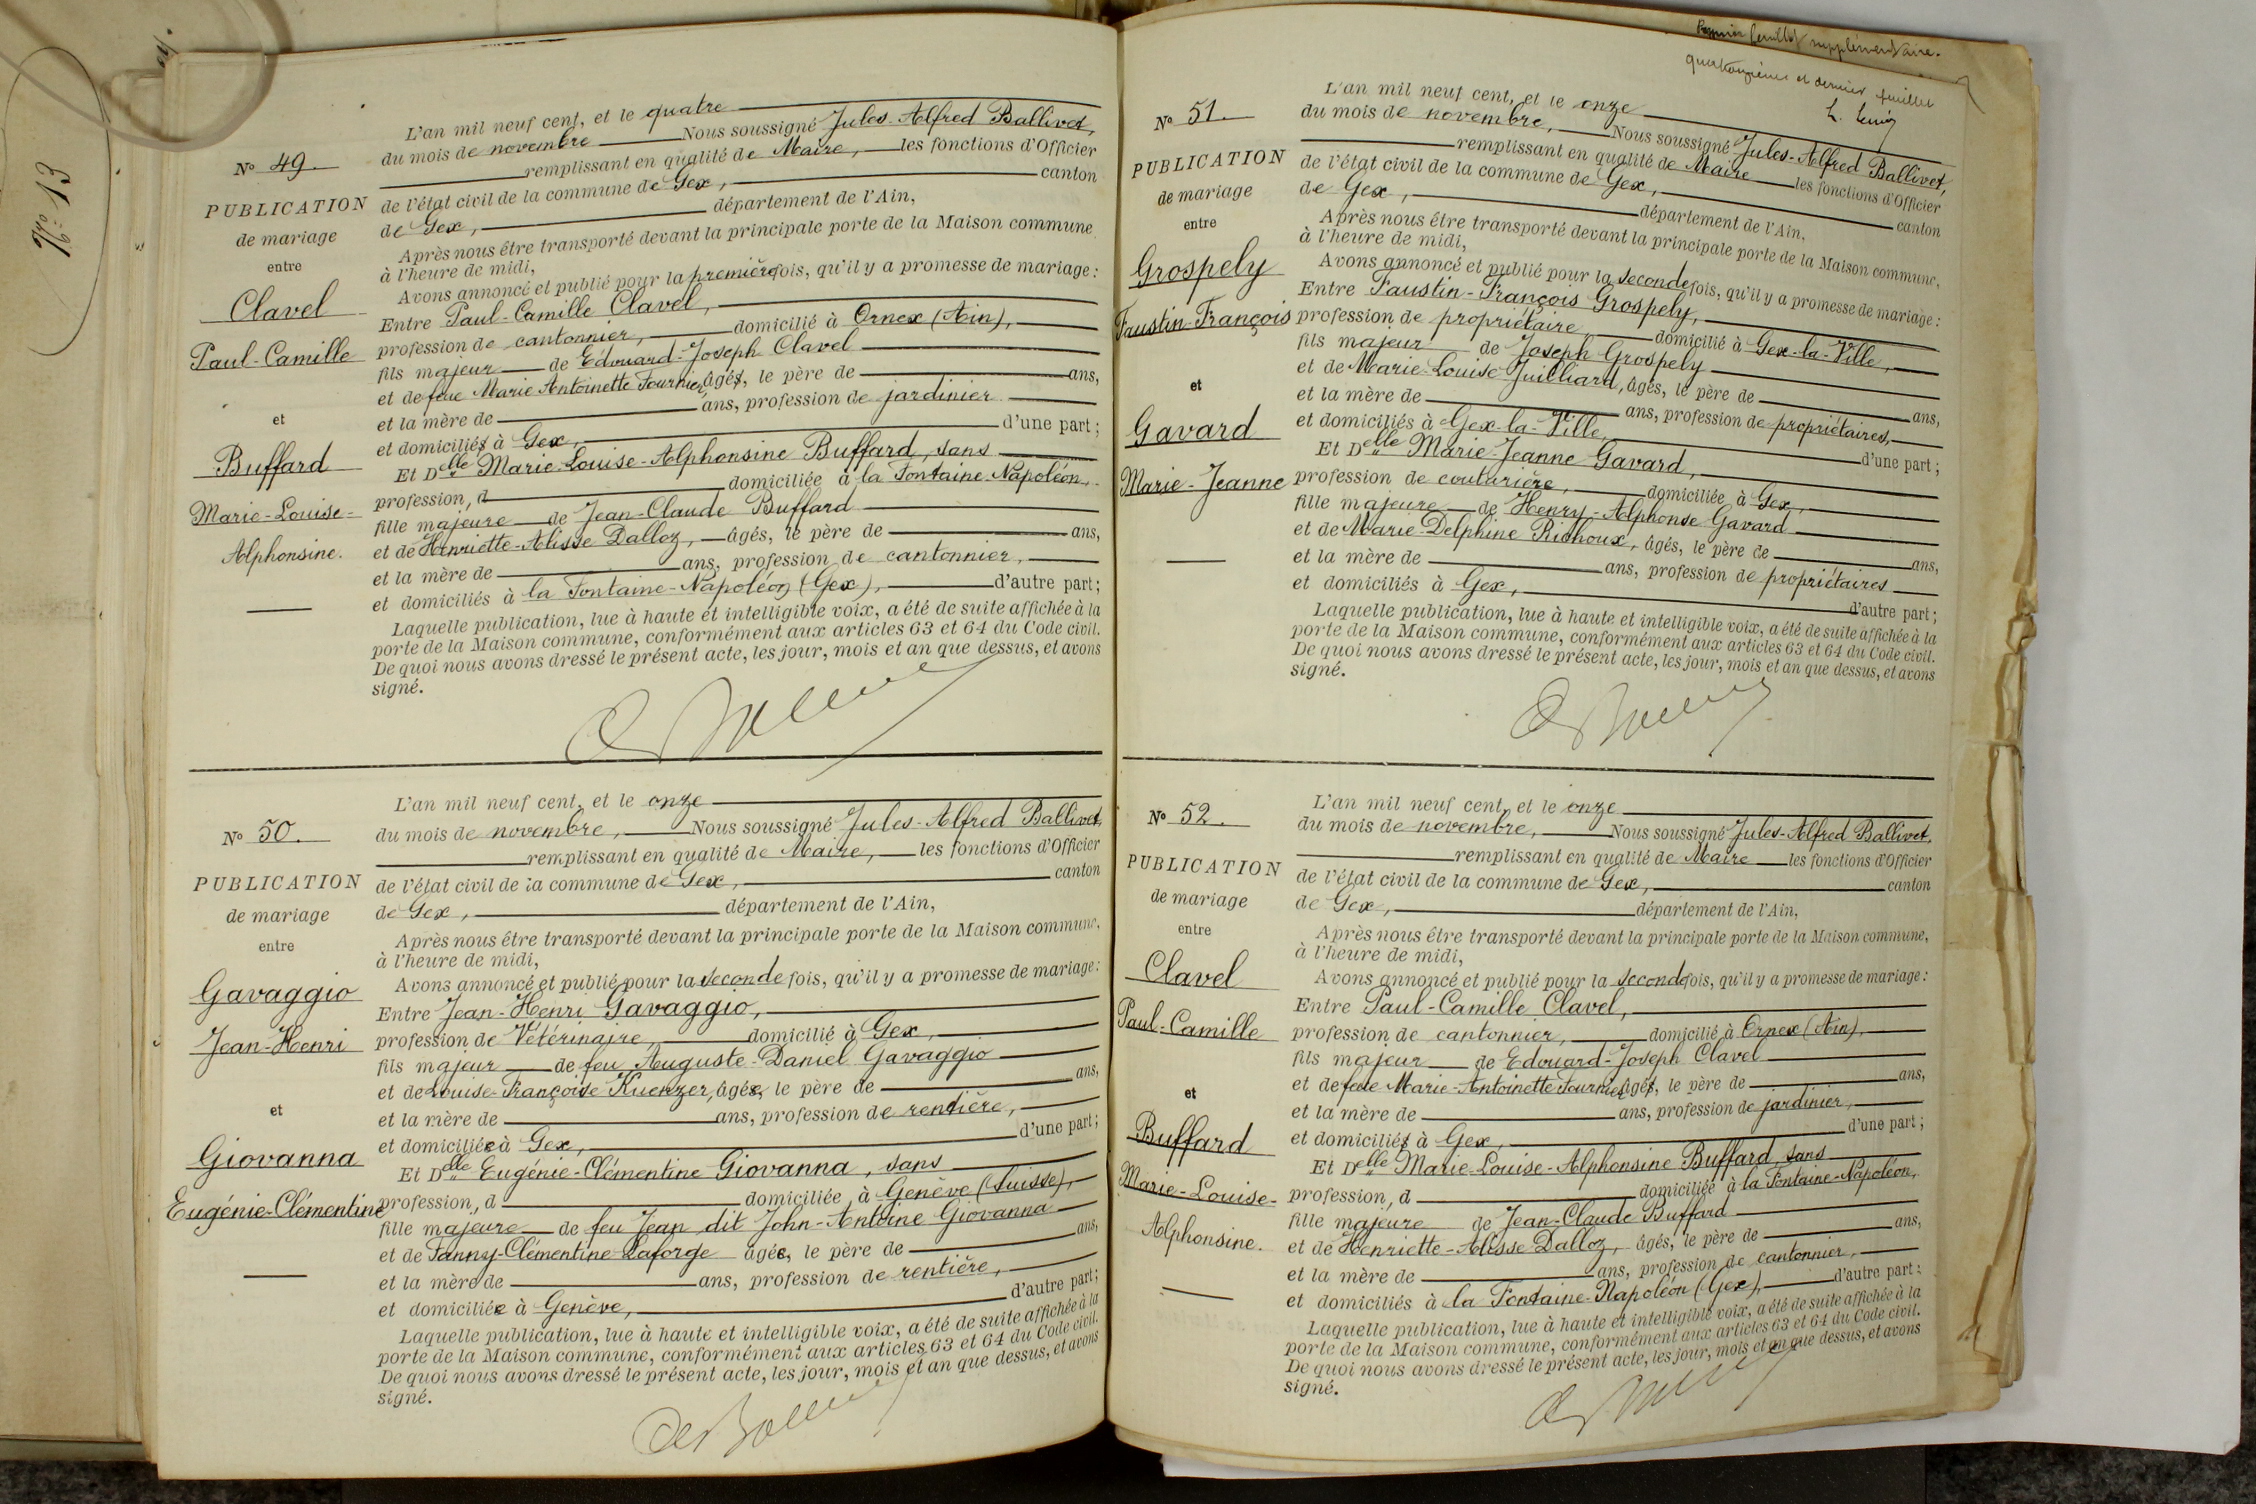 No 13
No 49.
PUBLICATION
de mariage
entre
Clavel
Paul-Camille
et
Buffard
Marie-Louise-
Alphonsine.
L'an mil neuf cent, et le quatre
du mois de novembre Nous soussigné Jules-Alfred Ballivet,
remplissant en qualité de Maire, les fonctions d'Officier
de l'état civil de la commune de Gex, canton
de Gex, département de l'Ain,
Après nous être transporté devant la principale porte de la Maison commune
à l'heure de midi,
Avons annoncé et publié pour la première fois, qu'il y a promesse de mariage :
Entre Paul-Camille Clavel,
profession de cantonnier, domicilié à Ornex (Ain),
fils majeur de Edouard-Joseph Clavel
et de feue Marie Antoinette Fournier, âgés, le père de ans,
et la mère de ans, profession de jardinier
et domiciliés à Gex, d'une part ;
Et Delle Marie-Louise-Alphonsine Buffard, sans
profession, d domiciliée à la Fontaine-Napoléon,
fille majeure de Jean-Claude Buffard
et de Henriette-Alisse Dalloz, âgés, le père de ans,
et la mère de ans, profession de cantonnier,
et domiciliés à la Fontaine-Napoléon (Gex), d'autre part ;
Laquelle publication, lue à haute et intelligible voix, a été de suite affichée à la
porte de la Maison commune, conformément aux articles 63 et 64 du Code civil.
De quoi nous avons dressé le présent acte, les jour, mois et an que dessus, et avons
signé.
No 50.
PUBLICATION
de mariage
entre
Gavaggio
Jean-Henri
et
Giovanna
Eugénie-Clémentine
L'an mil neuf cent, et le onze
du mois de novembre, Nous soussigné Jules-Alfred Ballivet,
remplissant en qualité de Maire, les fonctions d'Officier
de l'état civil de la commune de Gex, canton
de Gex, département de l'Ain,
Après nous être transporté devant la principale porte de la Maison commune,
à l'heure de midi,
Avons annoncé et publié pour la seconde fois, qu'il y a promesse de mariage :
Entre Jean-Henri Gavaggio,
profession de Vétérinaire, domicilié à Gex,
fils majeur de feu Auguste-Daniel Gavaggio
et de Louise-Françoise Kuenzer, âgée, le père de ans,
et la mère de ans, profession de rentière,
et domiciliée à Gex, d'une part ;
Et Delle Eugénie-Clémentine Giovanna, sans
profession, d domiciliée à Genève (Suisse),
fille majeure de feu Jean, dit John-Antoine Giovanna
et de Fanny-Clémentine Laforge âgée, le père de ans,
et la mère de ans, profession de rentière,
et domiciliée à Genève, d'autre part ;
Laquelle publication, lue à haute et intelligible voix, a été de suite affichée à la
porte de la Maison commune, conformément aux articles 63 et 64 du Code civil.
De quoi nous avons dressé le présent acte, les jour, mois et an que dessus, et avons
signé.
Premier feuillet supplémentaire.
quatorzième et dernier feuillet
No 51.
PUBLICATION
de mariage
entre
Grospely
Faustin-François
et
Gavard
Marie-Jeanne
L'an mil neuf cent, et le onze
du mois de novembre, Nous soussigné Jules-Alfred Ballivet,
remplissant en qualité de Maire les fonctions d'Officier
de l'état civil de la commune de Gex, canton
de Gex, département de l'Ain,
Après nous être transporté devant la principale porte de la Maison commune,
à l'heure de midi,
Avons annoncé et publié pour la seconde fois, qu'il y a promesse de mariage :
Entre Faustin-François Grospely,
profession de propriétaire, domicilié à Gex-la-Ville,
fils majeur de Joseph Grospely
et de Marie-Louise Juilliard, âgés, le père de ans,
et la mère de ans, profession de propriétaires,
et domiciliés à Gex-la-Ville, d'une part ;
Et Delle Marie-Jeanne Gavard,
profession de couturière, domiciliée à Gex,
fille majeure de Henry-Alphonse Gavard
et de Marie-Delphine Richoux, âgés, le père de ans,
et la mère de ans, profession de propriétaires
et domiciliés à Gex, d'autre part ;
Laquelle publication, lue à haute et intelligible voix, a été de suite affichée à la
porte de la Maison commune, conformément aux articles 63 et 64 du Code civil.
De quoi nous avons dressé le présent acte, les jour, mois et an que dessus, et avons
signé.
No 52.
PUBLICATION
de mariage
entre
Clavel
Paul-Camille
et
Buffard
Marie-Louise-
Alphonsine.
L'an mil neuf cent, et le onze
du mois de novembre, Nous soussigné Jules-Alfred Ballivet,
remplissant en qualité de Maire les fonctions d'Officier
de l'état civil de la commune de Gex, canton
de Gex, département de l'Ain,
Après nous être transporté devant la principale porte de la Maison commune,
à l'heure de midi,
Avons annoncé et publié pour la seconde fois, qu'il y a promesse de mariage :
Entre Paul-Camille Clavel,
profession de cantonnier, domicilié à Ornex (Ain),
fils majeur de Edouard-Joseph Clavel
et de feue Marie-Antoinette Fournier, âgés, le père de ans,
et la mère de ans, profession de jardinier,
et domiciliés à Gex, d'une part ;
Et Delle Marie-Louise-Alphonsine Buffard, sans
profession, d domiciliée à la Fontaine-Napoléon,
fille majeure de Jean-Claude Buffard
et de Henriette-Alisse Dalloz, âgés, le père de ans,
et la mère de ans, profession de cantonnier,
et domiciliés à la Fontaine-Napoléon (Gex), d'autre part ;
Laquelle publication, lue à haute et intelligible voix, a été de suite affichée à la
porte de la Maison commune, conformément aux articles 63 et 64 du Code civil.
De quoi nous avons dressé le présent acte, les jour, mois et an que dessus, et avons
signé.